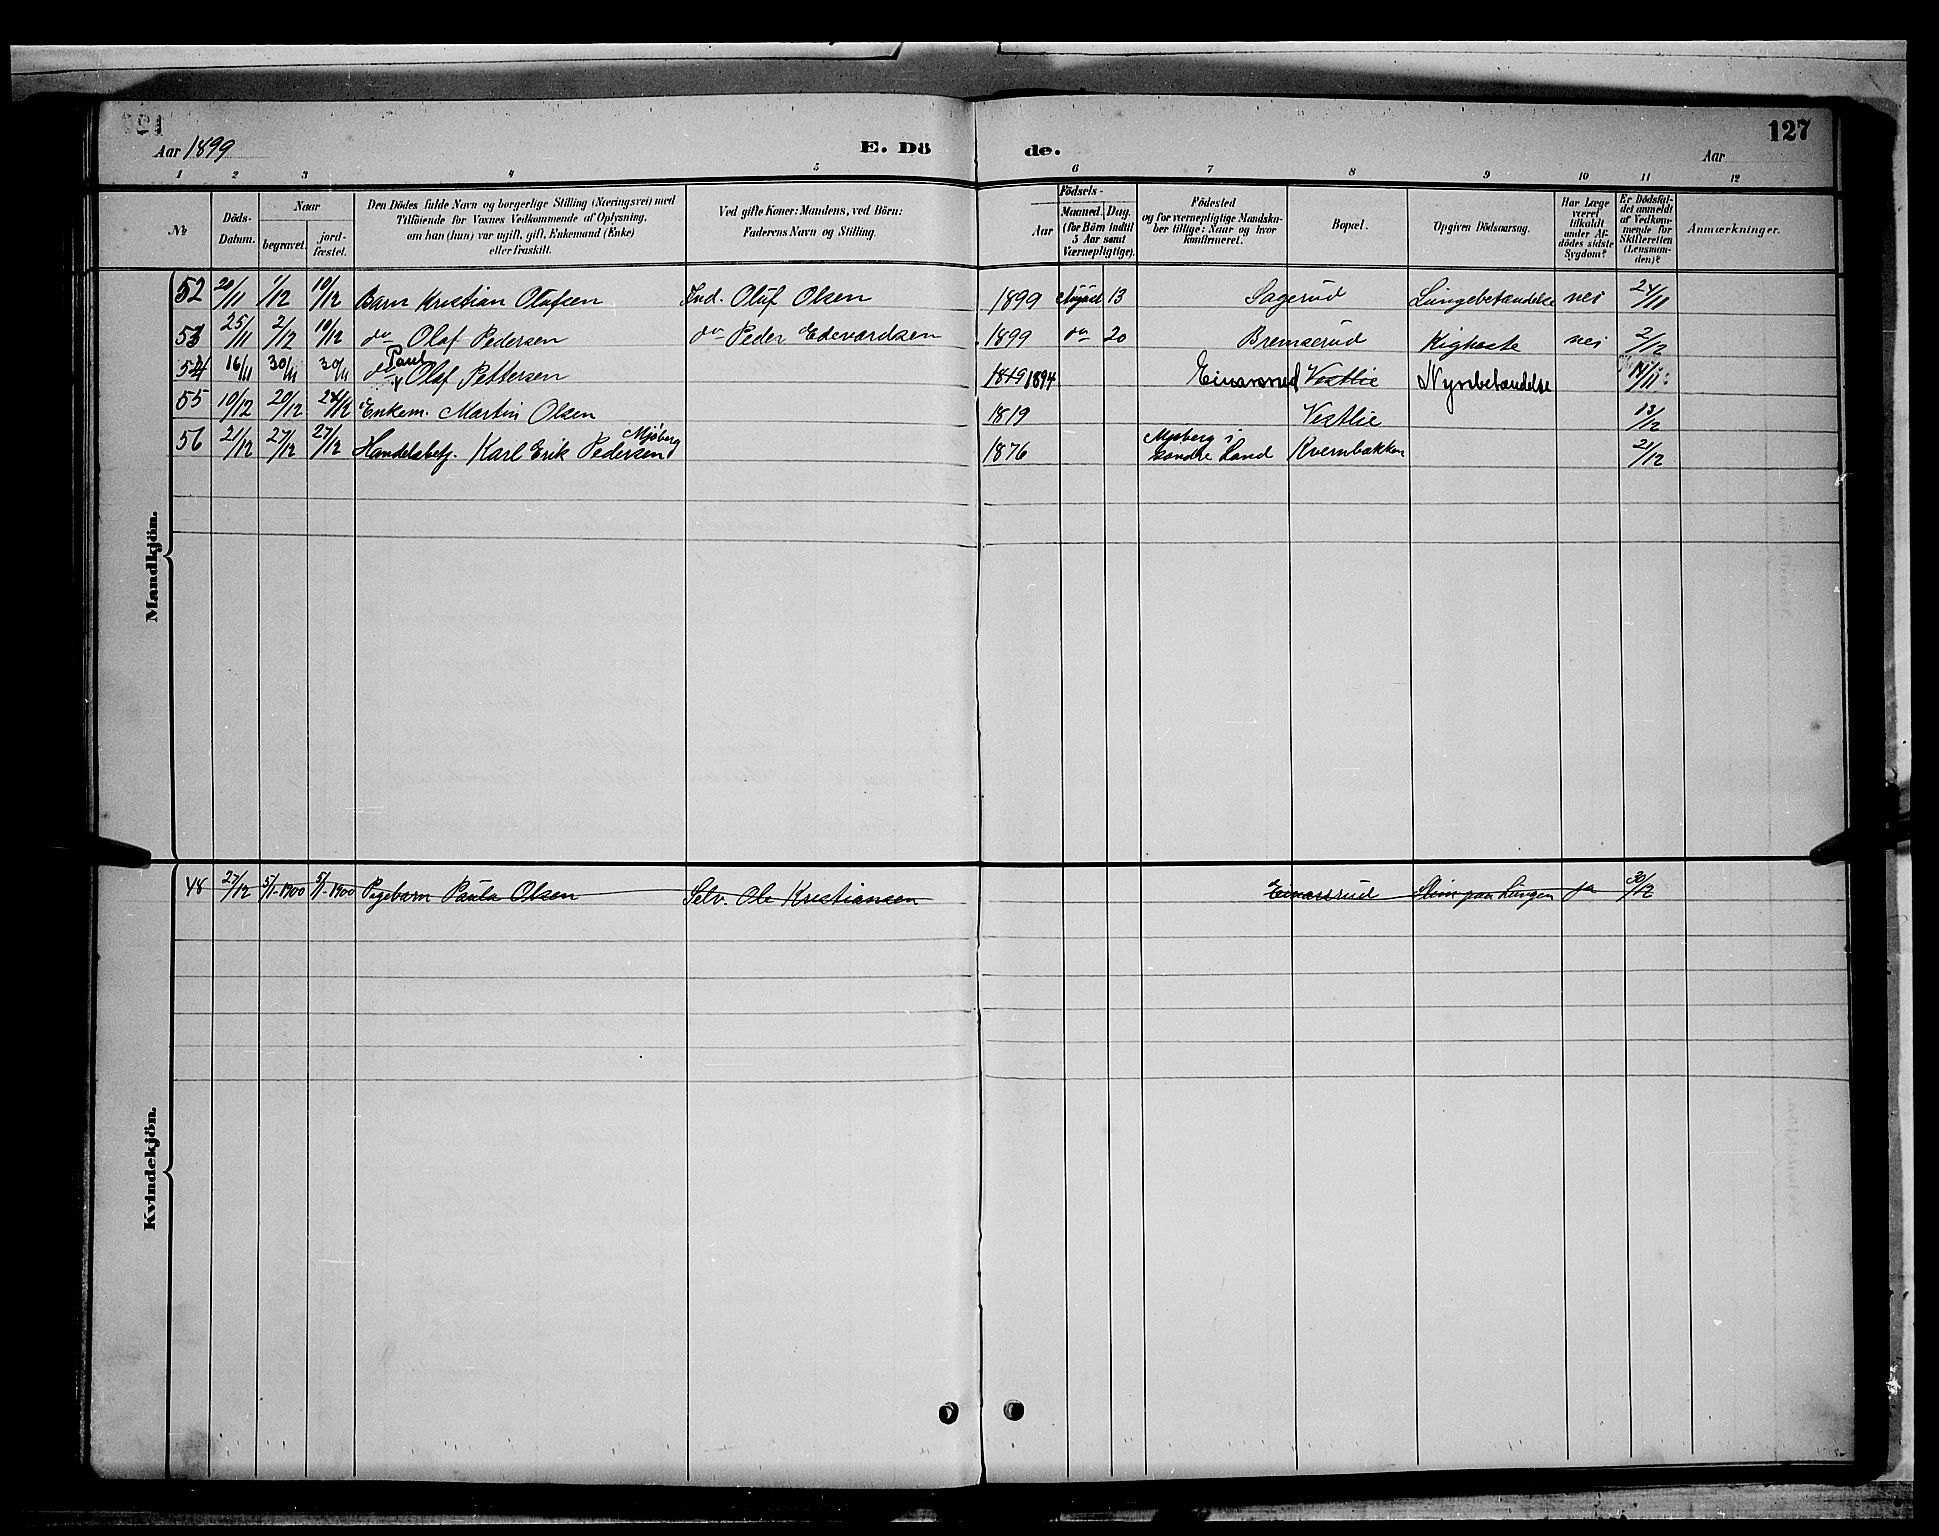 127
Aar 1899
E. Dö de.
Aar
1 2 3 4 5 6 7 8 9 10 11 12
№
Döds-Datum.
Naar
begravet.
jord-fæstet.
Den Dödes fulde Navn og borgerlige Stilling (Næringsvei) med
Tilföiende for Voxnes Vedkommende af Oplysning,
om han (hun) var ugift, gift, Enkemand (Enke)
eller fraskilt.
Ved gifte Koner: Mandens, ved Börn:
Faderens Navn og Stilling.
Födsels-
Aar
Maaned. Dag.
(for Börn indtil
5 Aar samt
Værnepligtige).
Födested
og for værnepligtige Mandska-
ber tillige: Naar og hvor
konfirmeret.
Bopæl.
Opgiven Dödsaarsag.
Har Læge
været
tilkaldt
under Af-
dödes sidste
Sygdom?
Er Dödsfal-
det anmeldt
af Vedkom-
mende for
Skifteretten
(Lensman-
den)?
Anmærkninger.
Mandkjön.
52 20/11 1/12 10/12 Barn Kristian Olufsen Ind. Oluf Olsen 1899 August 13 Sagerud Lungebetændelse nei 24/11
53 25/11 2/12 10/12 do Olaf Pedersen do Peder Edevardsen 1899 do 20 Bremserud Kighoste nei 2/12
Paul
54 16/11 30/11 30/11 do Olaf Pettersen 1819 1894 Einarsrud Vestlie Nyrebetændelse /11
55 10/12 20/12 /12 Enkem. Martin Olsen 1819 Vestlie 13/12
Mjöberg
56 21/12 27/12 27/12 Handelsbetj. Karl Erik Pedersen 1876 Mjöberg i
Söndre Land Kvernbakken 21/12
Kvindekjön.
48 27/12 5/1-1900 5/1-1900 Pigebarn Paula Olsen Selv. Ole Kristiansen Einarsrud Slim paa Lungen ja 30/12